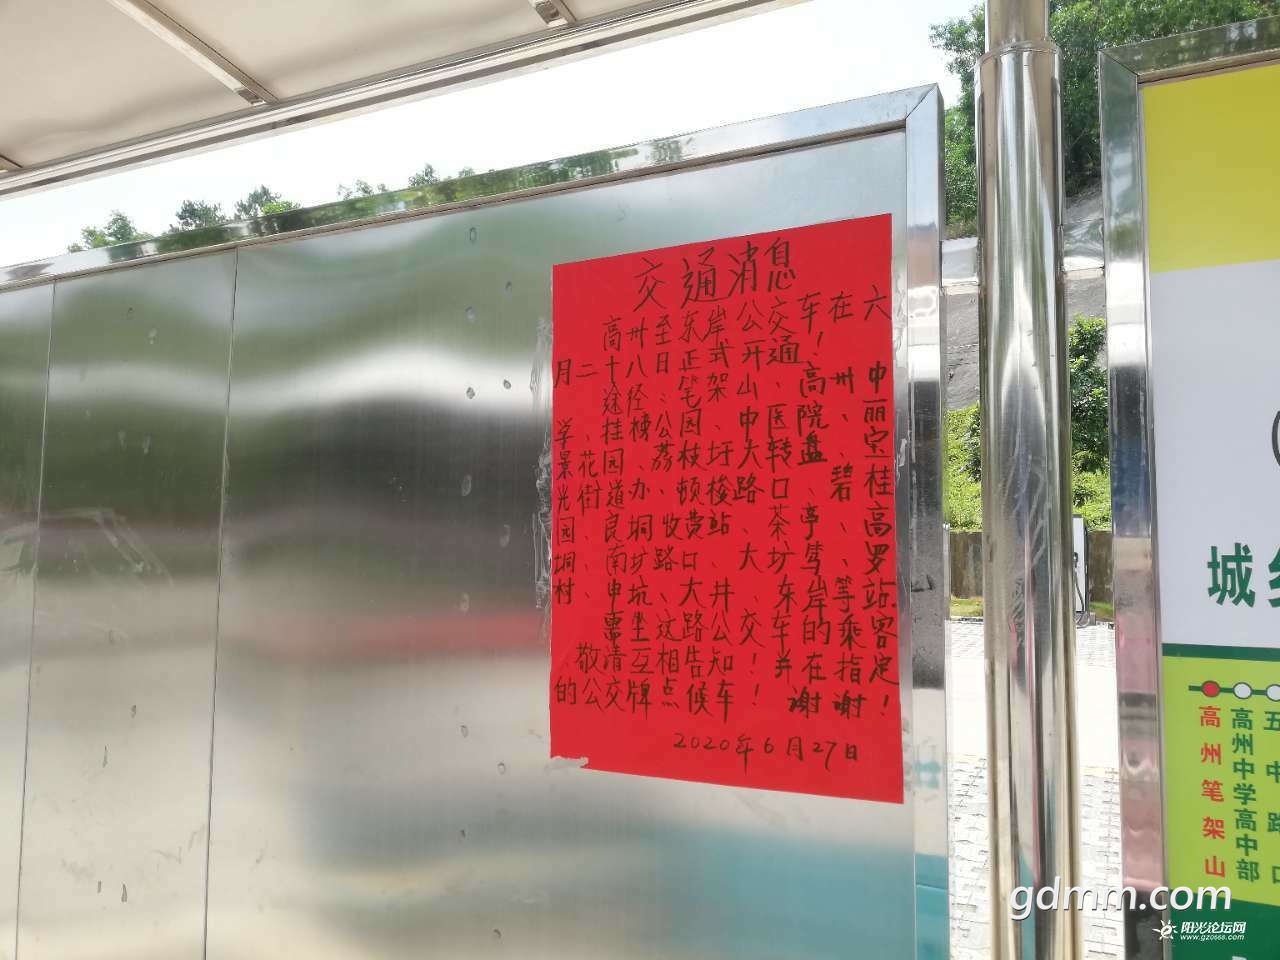 交通消息
高州至东岸公交车在六
月二十八日正式开通!
途径:笔架山、高州中
学、桂榜公园、中医院、丽
景花园、荔枝圩大转盘、宝
光街道办、顿梭路口、碧桂
园、良垌收费站、茶亭、高
垌、南坟路口、大坟笃、罗
村、申坑、大井、东岸等站.
需坐这路公交车的乘客
敬请互相告知!并在指定
的公交牌点候车!谢谢!
2020年6月27日
城乡
高州笔架山
高州中学高中部
五中路口
gdmm.com
阳光论坛网
www.gz0668.com